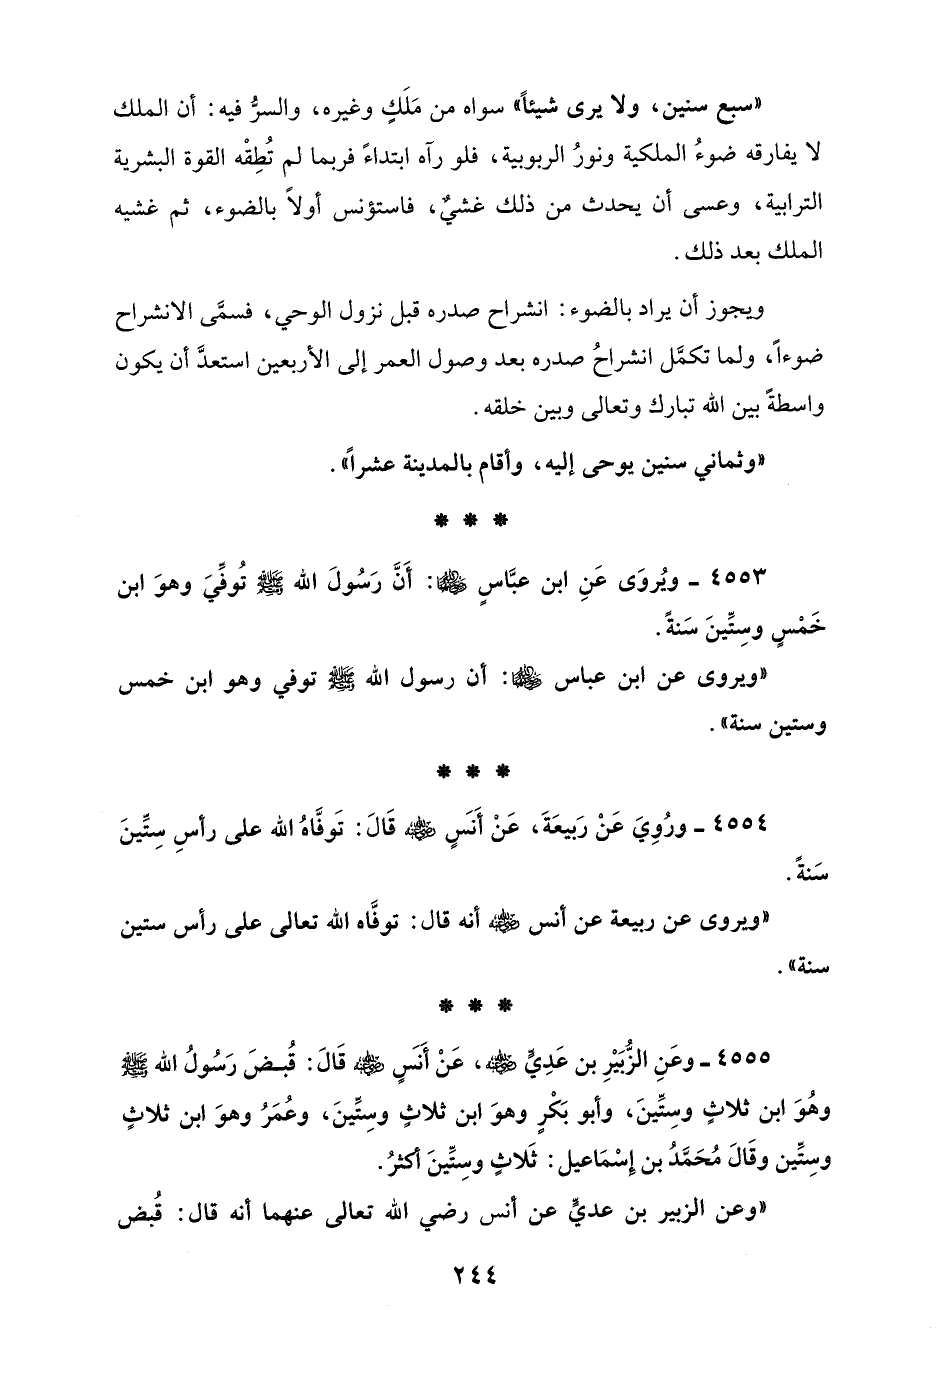 «سبع سنين، ولا يرى شيئاً» سواه من مَلَكٍ وغيره، والسرُّ فيه: أن الملك
لا يفارقه ضوءُ الملكية ونورُ الربوبية، فلو رآه ابتداءً فربما لم تُطِقْه القوة البشرية
الترابية، وعسى أن يحدث من ذلك غشيٌ، فاستؤنس أولاً بالضوء، ثم غشيه
الملك بعد ذلك.
ويجوز أن يراد بالضوء: انشراح صدره قبل نزول الوحي، فسمَّى الانشراح
ضوءاً، ولما تكمَّل انشراحُ صدره بعد وصول العمر إلى الأربعين استعدَّ أن يكون
واسطةً بين الله تبارك وتعالى وبين خلقه.
«وثماني سنين يوحى إليه، وأقام بالمدينة عشراً».
* * *
٤٥٥٣ - ويُروَى عَنِ ابن عبَّاسٍ ﵄: أَنَّ رَسُولَ الله ﷺ تُوفِّيَ وهوَ ابن
خَمْسٍ وسِتِّينَ سَنةً.
«ويروى عن ابن عباس ﵄: أن رسول الله ﷺ توفي وهو ابن خمس
وستين سنة».
* * *
٤٥٥٤ - ورُوِيَ عَنْ رَبيعَةَ، عَنْ أَنَسٍ ﵁ قَالَ: تَوفَّاهُ الله على رأسِ سِتِّينَ
سَنةً.
«ويروى عن ربيعة عن أنس ﵁ أنه قال: توفَّاه الله تعالى على رأس ستين
سنة».
* * *
٤٥٥٥ - وعَنِ الزُّبَيْرِ بن عَدِيٍّ ﵁، عَنْ أَنَسٍ ﵁ قَالَ: قُبضَ رَسُولُ الله ﷺ
وهُوَ ابن ثلاثٍ وسِتِّينَ، وأبو بَكْرٍ وهوَ ابن ثلاثٍ وسِتِّينَ، وعُمَرُ وهوَ ابن ثلاثٍ
وسِتِّين وقَالَ مُحَمَّدُ بن إسْمَاعيل: ثَلاثٍ وسِتِّينَ أكثرُ.
«وعن الزبير بن عديٍّ عن أنس رضي الله تعالى عنهما أنه قال: قُبض
٢٤٤